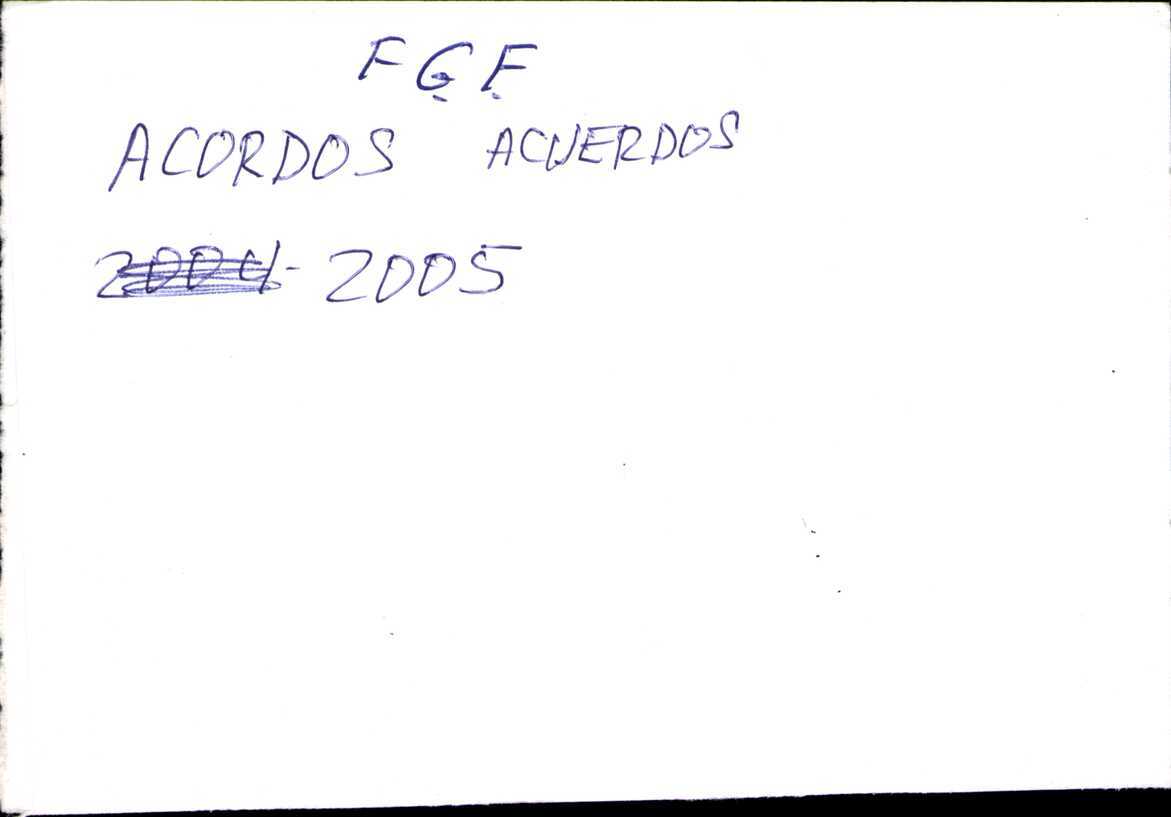 F G F
ACORDOS ACUERDOS
2004 - 2005